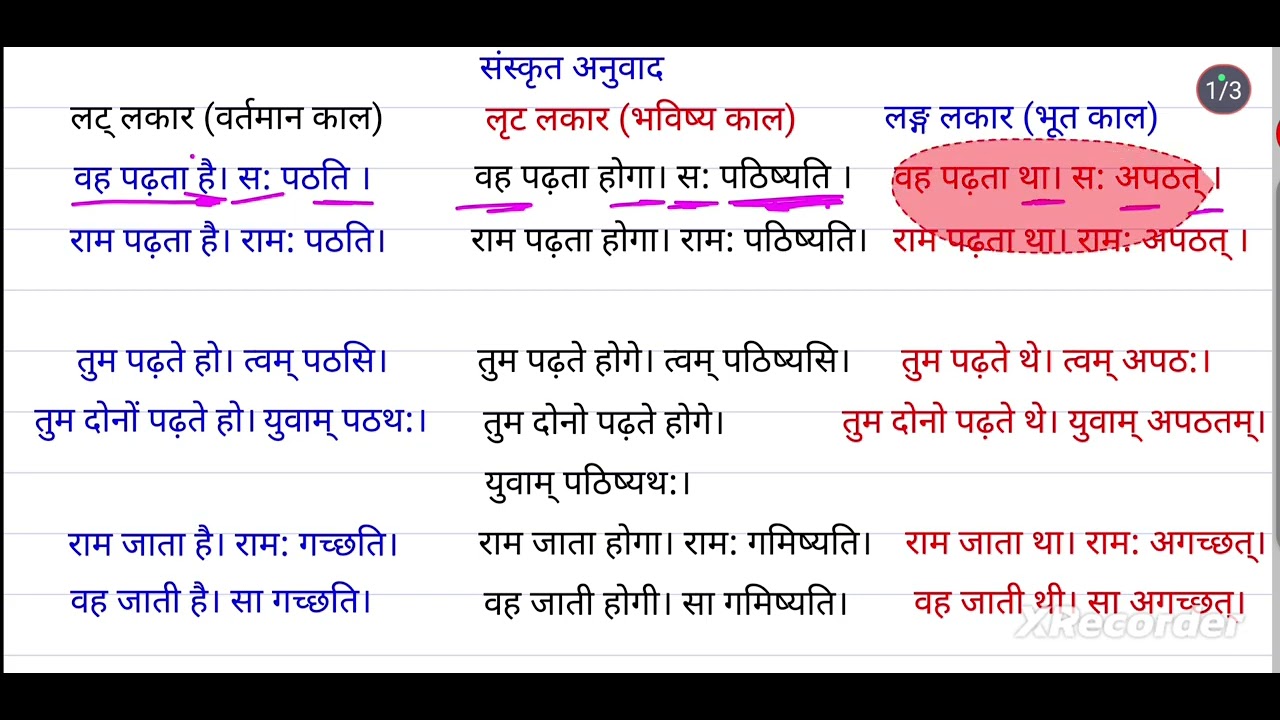 संस्कृत अनुवाद
1/3
लट् लकार (वर्तमान काल)
लृट लकार (भविष्य काल)
लङ्ग लकार (भूत काल)
वह पढ़ता है। स: पठति ।
वह पढ़ता होगा। स: पठिष्यति ।
वह पढ़ता था। स: अपठत् ।
राम पढ़ता है। राम: पठति।
राम पढ़ता होगा। राम: पठिष्यति।
राम पढ़ता था। राम: अपठत् ।
तुम पढ़ते हो। त्वम् पठसि।
तुम पढ़ते होगे। त्वम् पठिष्यसि।
तुम पढ़ते थे। त्वम् अपठ:।
तुम दोनों पढ़ते हो। युवाम् पठथ:।
तुम दोनो पढ़ते होगे।
तुम दोनो पढ़ते थे। युवाम् अपठतम्।
युवाम् पठिष्यथ:।
राम जाता है। राम: गच्छति।
राम जाता होगा। राम: गमिष्यति।
राम जाता था। राम: अगच्छत्।
वह जाती है। सा गच्छति।
वह जाती होगी। सा गमिष्यति।
वह जाती थी। सा अगच्छत्।
XRecorder